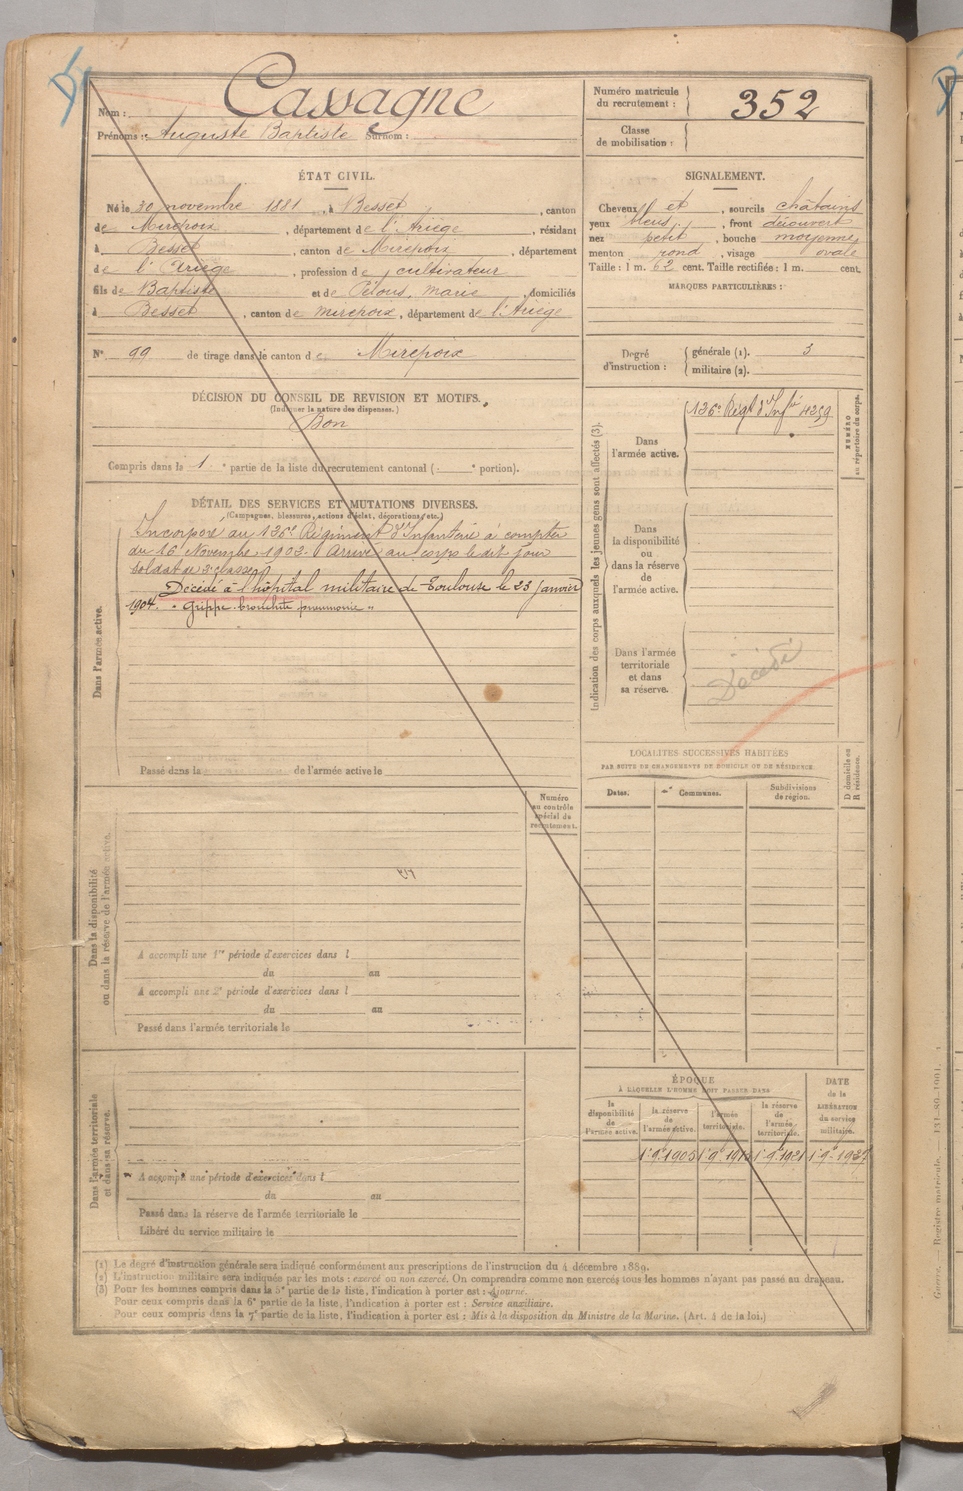 Nom : Cassagne
Prénoms : Auguste Baptiste Surnom :
Numéro matricule
du recrutement : 352
Classe
de mobilisation :
ÉTAT CIVIL.
Né le 30 novembre 1881, à Besset, canton
de Mirepoix, département de l'Ariège, résidant
à Besset, canton de Mirepoix, département
de l'Ariège, profession de cultivateur
fils de Baptiste et de Pélous, marie, domiciliés
à Besset, canton de mirepoix, département de l'Ariège
N° 99 de tirage dans le canton de Mirepoix
SIGNALEMENT.
Cheveux et, sourcils châtains
yeux bleus, front découvert
nez petit, bouche moyenne
menton rond, visage ovale
Taille : 1 m. 62 cent. Taille rectifiée : 1 m. cent.
MARQUES PARTICULIÈRES :
Degré
d'instruction :
générale (1). 3
militaire (2).
DÉCISION DU CONSEIL DE REVISION ET MOTIFS.
(Indiquer la nature des dispenses.)
Bon
Compris dans la 1e partie de la liste du recrutement cantonal ( e portion).
DÉTAIL DES SERVICES ET MUTATIONS DIVERSES.
(Campagnes, blessures, actions d'éclat, décorations, etc.)
Dans l'armée active.
Incorporé au 126e Régiment d'Infanterie à compter
du 16 Novembre 1902. Arrivé au corps le dit jour
soldat de 2e classe
Décédé à l'hôpital militaire de Toulouse le 23 Janvier
1904. " Grippe bronchite pneumonie "
Passé dans la de l'armée active le
Indication des corps auxquels les jeunes gens sont affectés (3).
Dans
l'armée active.
126e Régt d'Infie 4259
NUMÉRO
au répertoire du corps.
Dans
la disponibilité
ou
dans la réserve
de
l'armée active.
Dans l'armée
territoriale
et dans
sa réserve.
Décédé
LOCALITÉS SUCCESSIVES HABITÉES
PAR SUITE DE CHANGEMENTS DE DOMICILE OU DE RÉSIDENCE.
Dates.
Communes.
Subdivisions
de région.
D domicile ou
R résidence.
Numéro
au contrôle
spécial du
recrutement.
Dans la disponibilité
ou dans la réserve de l'armée active.
A accompli une 1re période d'exercices dans l
du au
A accompli une 2e période d'exercices dans l
du au
Passé dans l'armée territoriale le
Dans l'armée territoriale
et dans sa réserve.
A accompli une période d'exercices dans l
du au
Passé dans la réserve de l'armée territoriale le
Libéré du service militaire le
ÉPOQUE
À LAQUELLE L'HOMME DOIT PASSER DANS
la
disponibilité
de
l'armée active.
la réserve
de
l'armée active.
l'armée
territoriale.
la réserve
de
l'armée
territoriale.
DATE
de la
LIBÉRATION
du service
militaire.
(1) Le degré d'instruction générale sera indiqué conformément aux prescriptions de l'instruction du 4 décembre 1889.
(2) L'instruction militaire sera indiquée par les mots : exercé ou non exercé. On comprendra comme non exercés tous les hommes n'ayant pas passé au drapeau.
(3) Pour les hommes compris dans la 5e partie de la liste, l'indication à porter est : Ajourné.
Pour ceux compris dans la 6e partie de la liste, l'indication à porter est : Service auxiliaire.
Pour ceux compris dans la 7e partie de la liste, l'indication à porter est : Mis à la disposition du Ministre de la Marine. (Art. 4 de la loi.)